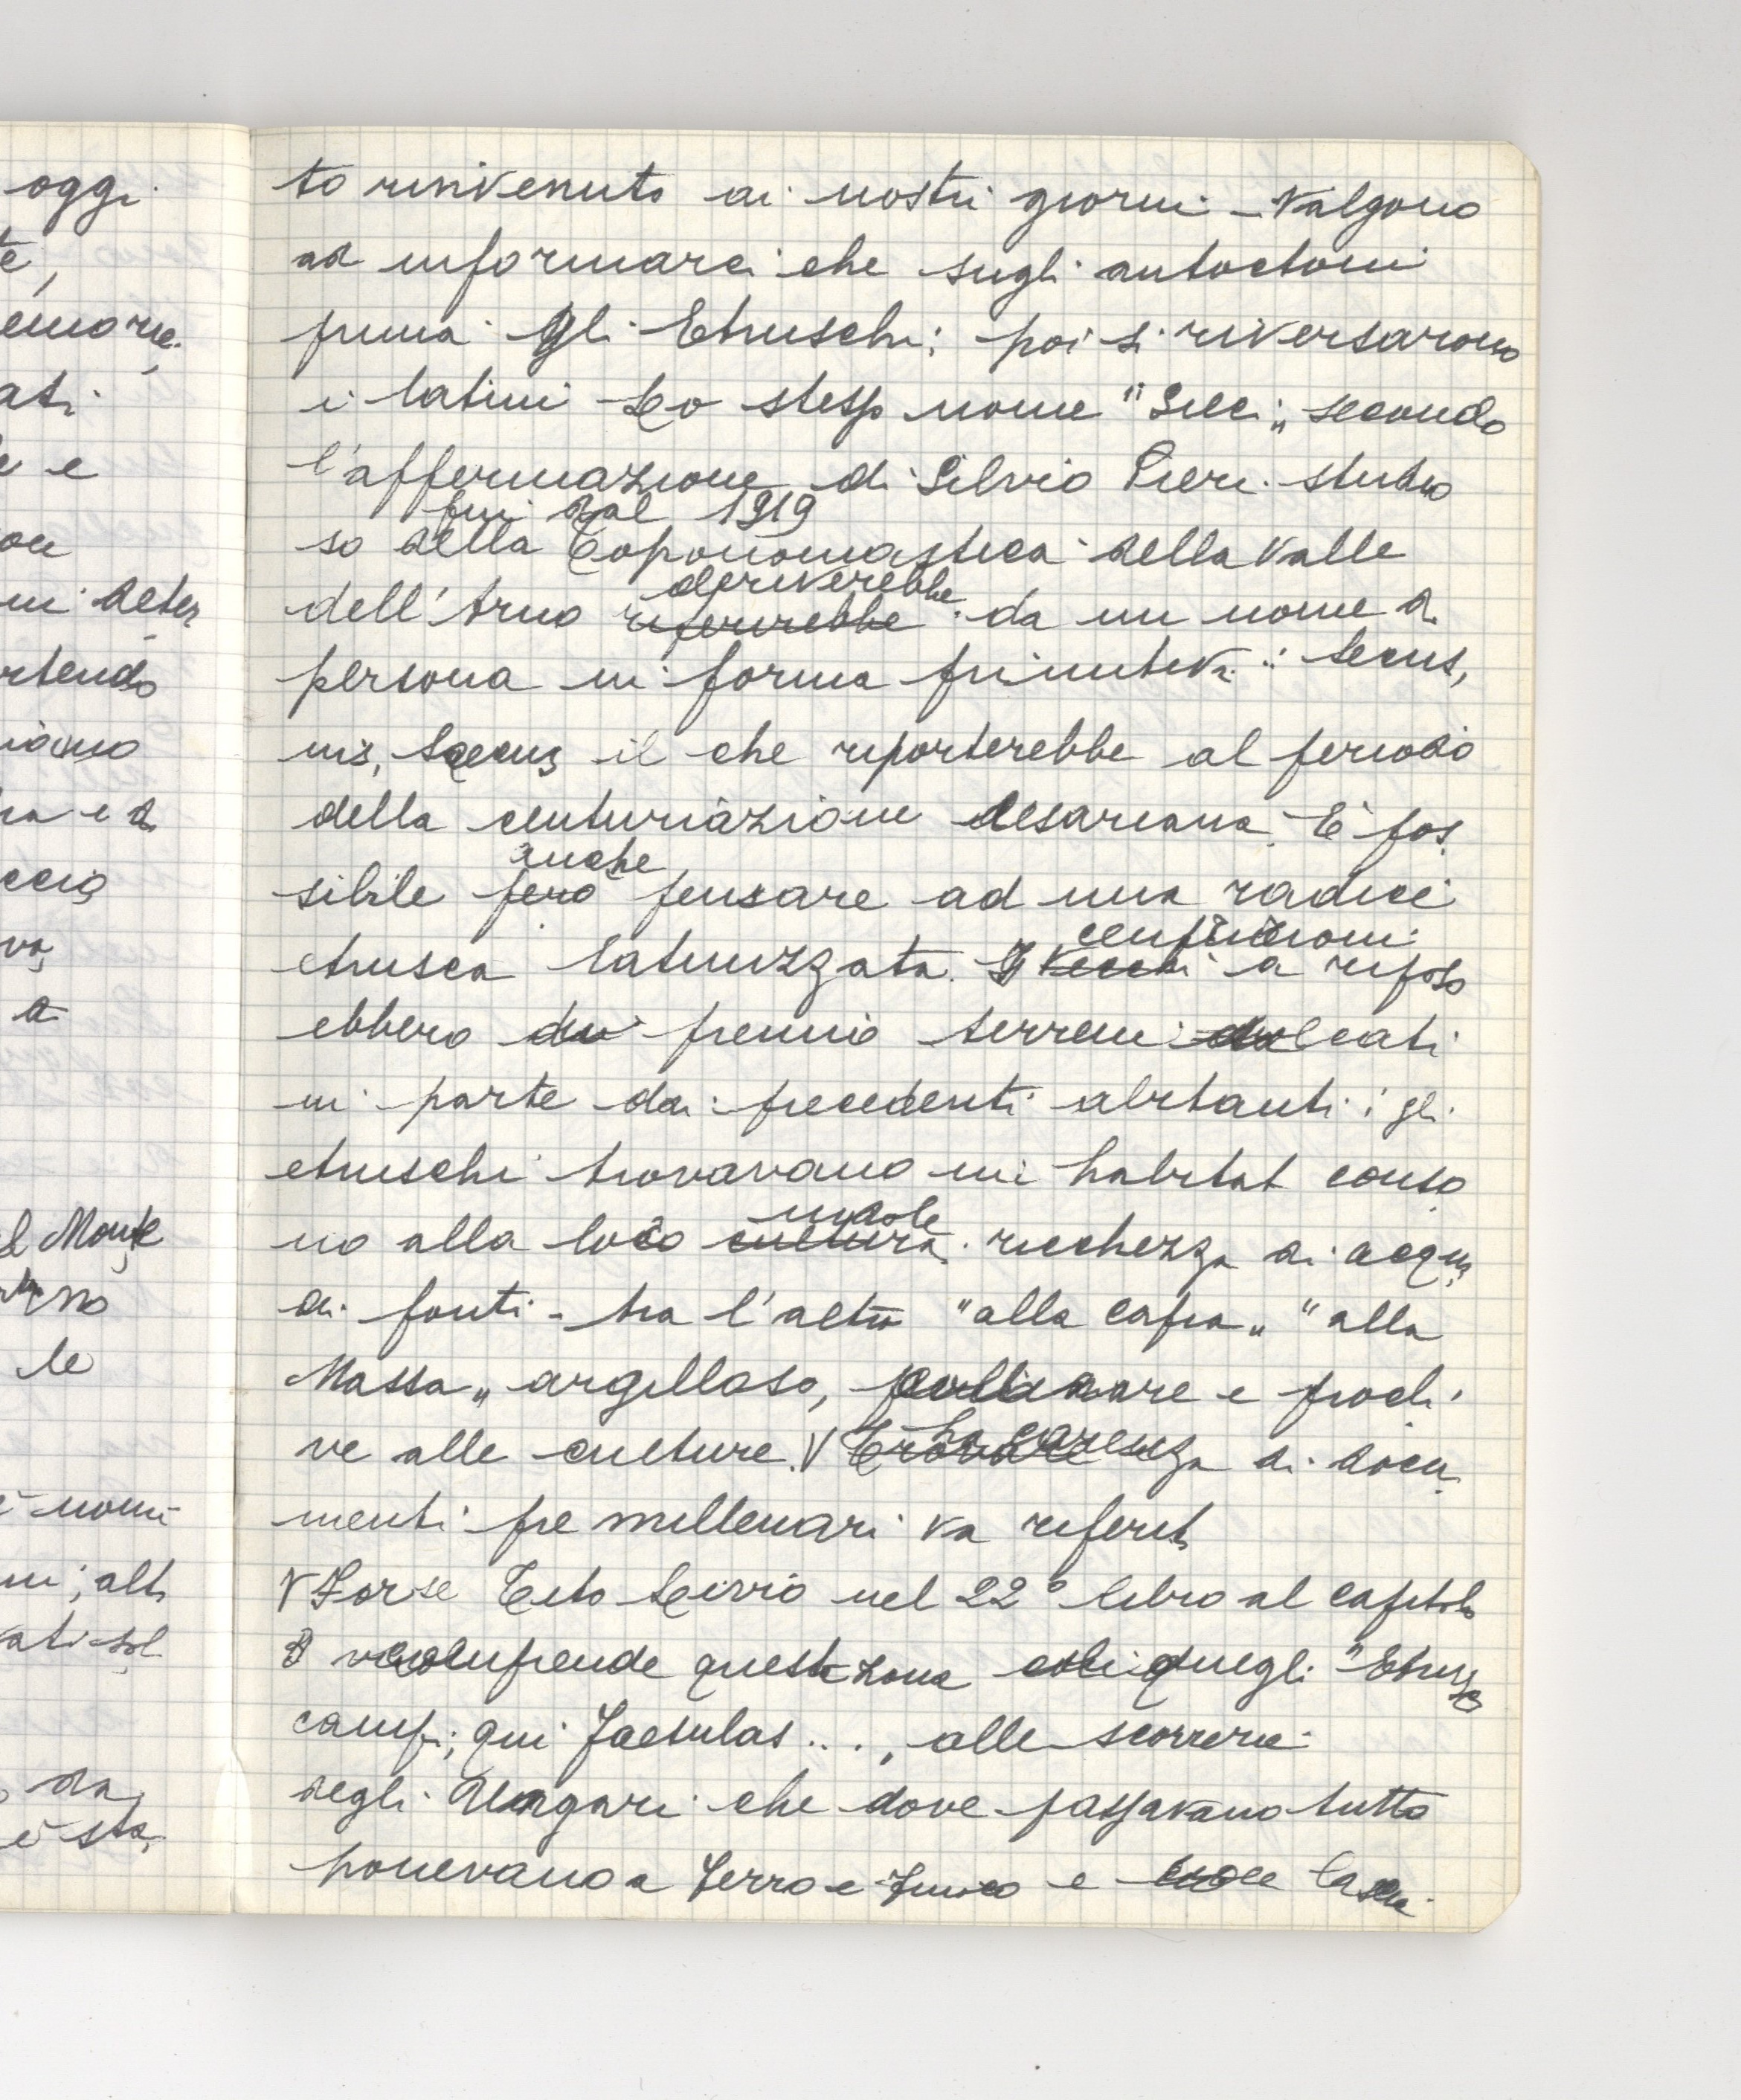 oggi
te,
emorie,
ati
e e
ni deter
rtendo
niamo
ccio
va,
a
l Monte
le
i nomi
ni, alt,
cati sol
, da,
è sta,
to rinvenuto ai nostri giorni - Valgono
ad informarci che sugli autoctoni
prima gli Etruschi; poi si riversarono
i latini Lo stesso nome "Sieci„ secondo
l'affermazione di Silvio Pieri studio
fin dal 1919
so della Toponomastica della Valle
deriverebbe
dell'Arno riferirebbe da un nome di
persona in forma primitiva: Secus,
nis, Saecus il che riporterebbe al periodo
della centuriazione cesariana. È pos
anche
sibile però pensare ad una radice
centurioni
etrusca latinizzata. I vecchi a riposo
ebbero in premio terreni
in parte dai precedenti abitanti; gli
etruschi trovavano un habitat conso
indole
no alla loro cultura. ricchezza di acqua,
di fonti - tra l'altro "alla capra„ "alla
Massa„ argilloso, e procli
La carenza
ve alle culture. V Trovare di docu
menti pre millenari va riferita
V Forse Tito Livio nel 22° libro al capitolo
3 comprende questa zona quegli "Etrusci
campi, qui Faesulas . . . , alle scorrerie
degli Ungari che dove passavano tutto
ponevano a ferro e fuoco e